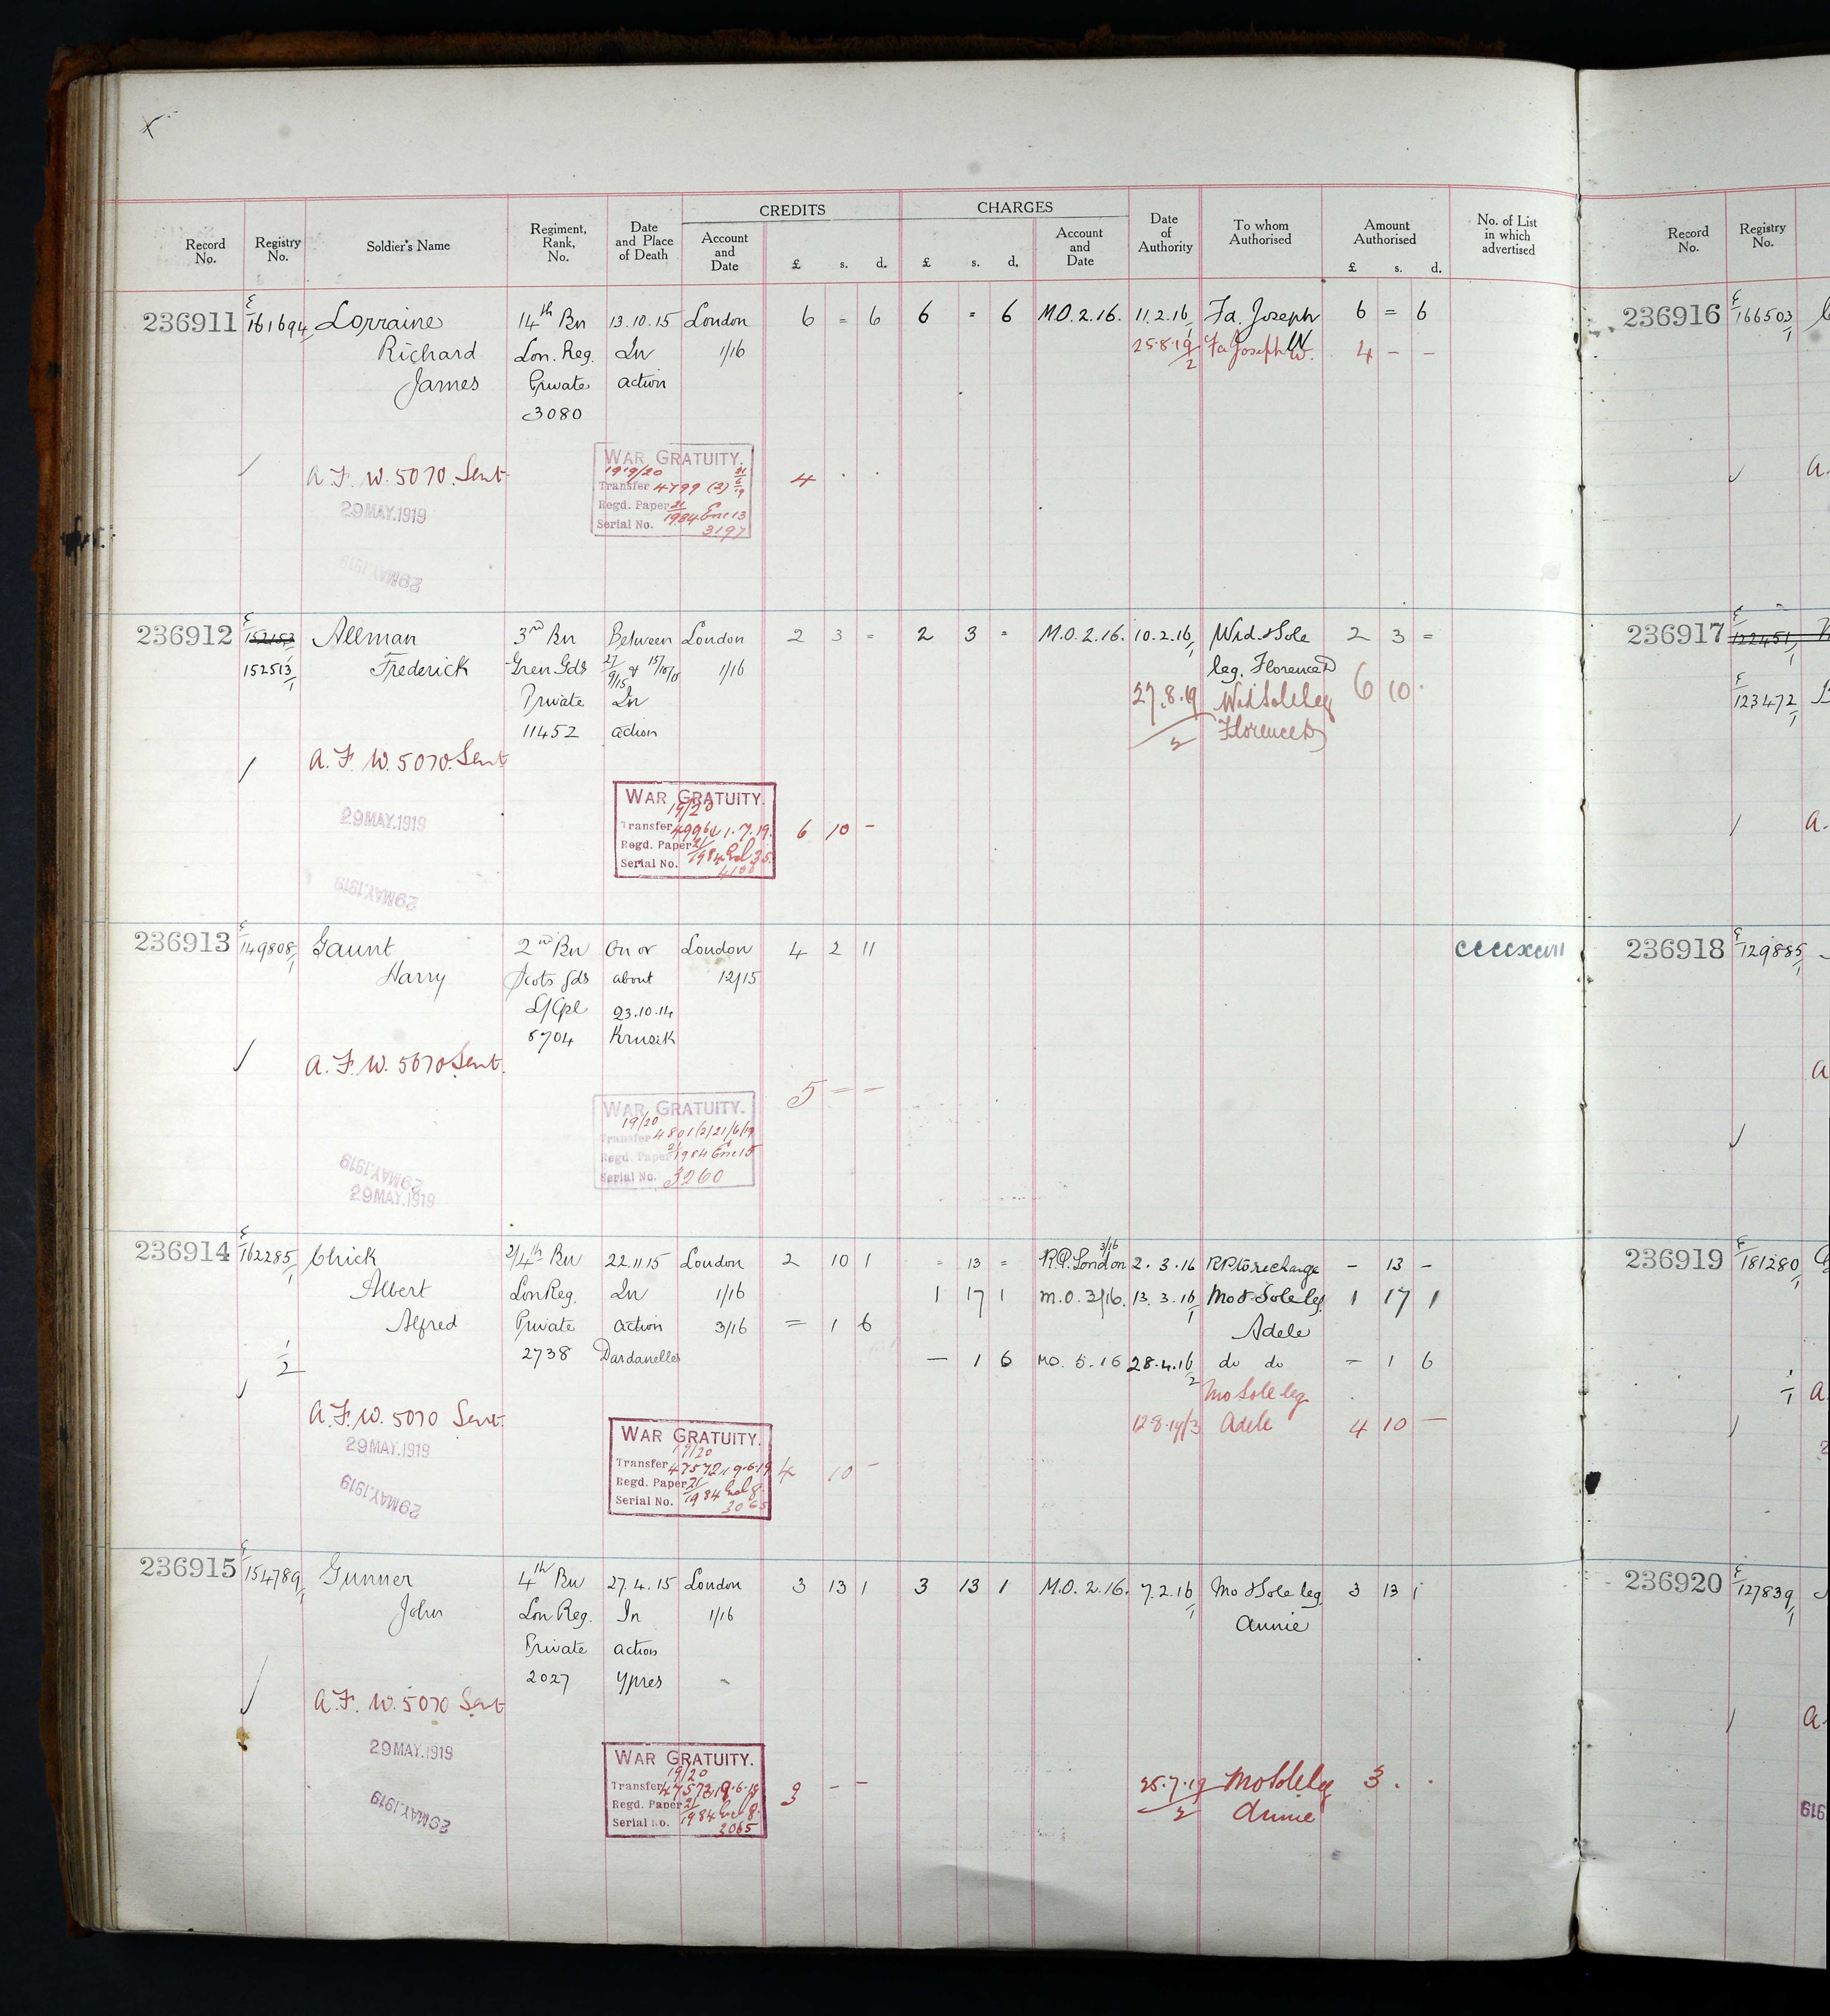 CREDITS CHARGES
Record No. Registry No. Soldier's Name Regiment, Rank, No. Date and Place of Death Account and Date £ s. d. £ s. d. Account and Date Date of Authority To whom Authorised Amount Authorised £ s. d. No. of List in which advertised Record No. Registry No.
236911 E/161694/1 Lorraine 14th Bn 13.10.15 London 6 = 6 6 = 6 M.O. 2.16. 11.2.16/1 Fa. Joseph W 6 = 6
Richard Lon. Reg. In 1/16 25.8.19/2 Fa Joseph W. 4 - -
James Private action
3080
WAR GRATUITY.
A. F. W. 5070. Sent 1919/20 4 . .
Transfer 4799 (2) 21/6/19
29 MAY.1919 Regd. Paper 21/1984 Enc 13
Serial No. 3197
29 MAY.1919
236912 E/152153 Allman 3rd Bn Between London 2 3 = 2 3 = M.O. 2.16. 10.2.16/1 Wid. & Sole 2 3 =
152513/1 Frederick Gren Gds 27/9/15 & 15/10/15 1/16 leg. Florence D
Private In 27.8.19/2 Wid Sole leg 6 10 .
11452 action Florence D
A. F. W. 5070. Sent
WAR GRATUITY.
19/20
29 MAY.1919 Transfer 1.7.19. 6 10 -
Regd. Paper 21/1984
Serial No.
29 MAY.1919
236913 E/149808/1 Gaunt 2nd Bn On or London 4 2 11 ccccxcvii
Harry Scots Gds about 12/15
L/Cpl 23.10.14
6704 Kruseik
A. F. W. 5070 Sent.
5 = -
WAR GRATUITY.
19/20
Transfer 4801/2/21/6/19
29 MAY.1919 Regd. Paper 21/1984 Enc 15
29 MAY.1919 Serial No. 3260
236914 E/162285/1 Chick 2/4th Bn 22.11.15 London 2 10 1 = 13 = R.P. London 3/16 2.3.16 RP to recharge - 13 -
Albert Lon Reg. In 1/16 1 17 1 M.O. 3/16. 13.3.16/1 Mo & Sole leg 1 17 1
Alfred Private action 3/16 = 1 6 Adele
1/2 2738 Dardanelles - 1 6 MO. 5.16 28.4.16/2 do do - 1 6
Mo Sole leg
A. F. W. 5070 Sent 12.8.19/3 Adele 4 10 -
29 MAY.1919 WAR GRATUITY.
19/20
Transfer 4 10 -
29 MAY.1919 Regd. Paper 21/1984
Serial No.
236915 E/154789/1 Gunner 4th Bn 27.4.15 London 3 13 1 3 13 1 M.O. 2.16. 7.2.16/1 Mo & Sole leg 3 13 1
John Lon Reg. In 1/16 Annie
Private action
2027 Ypres
A. F. W. 5070 Sent
29 MAY.1919 WAR GRATUITY.
19/20 25.7.19/2 Mo Sole leg 3 . .
Transfer 3 - - Annie
29 MAY.1919 Regd. Paper 21/1984
Serial No.
236916 E/166503/1
A.
236917 E/122451/1
E/123472/1
A.
236918 E/129885/1
A
236919 E/181280/1
1/1 A
236920 E/127839/1
A.
919